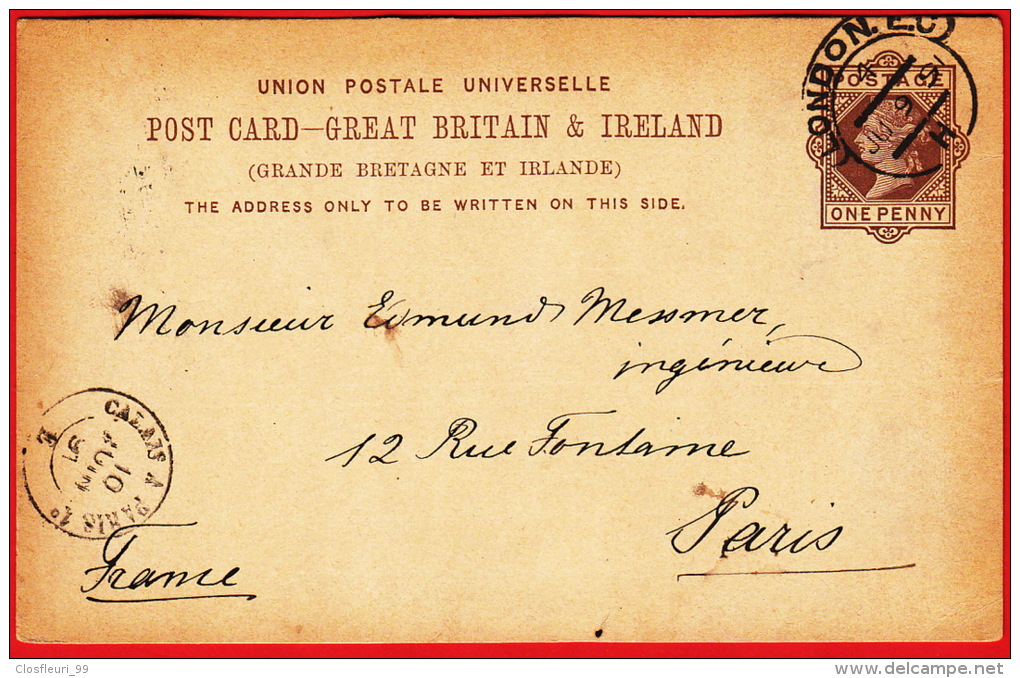 UNION POSTALE UNIVERSELLE
POST CARD—GREAT BRITAIN & IRELAND
(GRANDE BRETAGNE ET IRLANDE)
THE ADDRESS ONLY TO BE WRITTEN ON THIS SIDE.
LONDON. E.C.
POSTAGE
ONE PENNY
H
Monsieur Edmund Messmer,
ingénieur
12 Rue Fontaine
Paris
France
CALAIS A PARIS 1º
10
JUIN
91
E
Closfleuri_99
delcampe.net